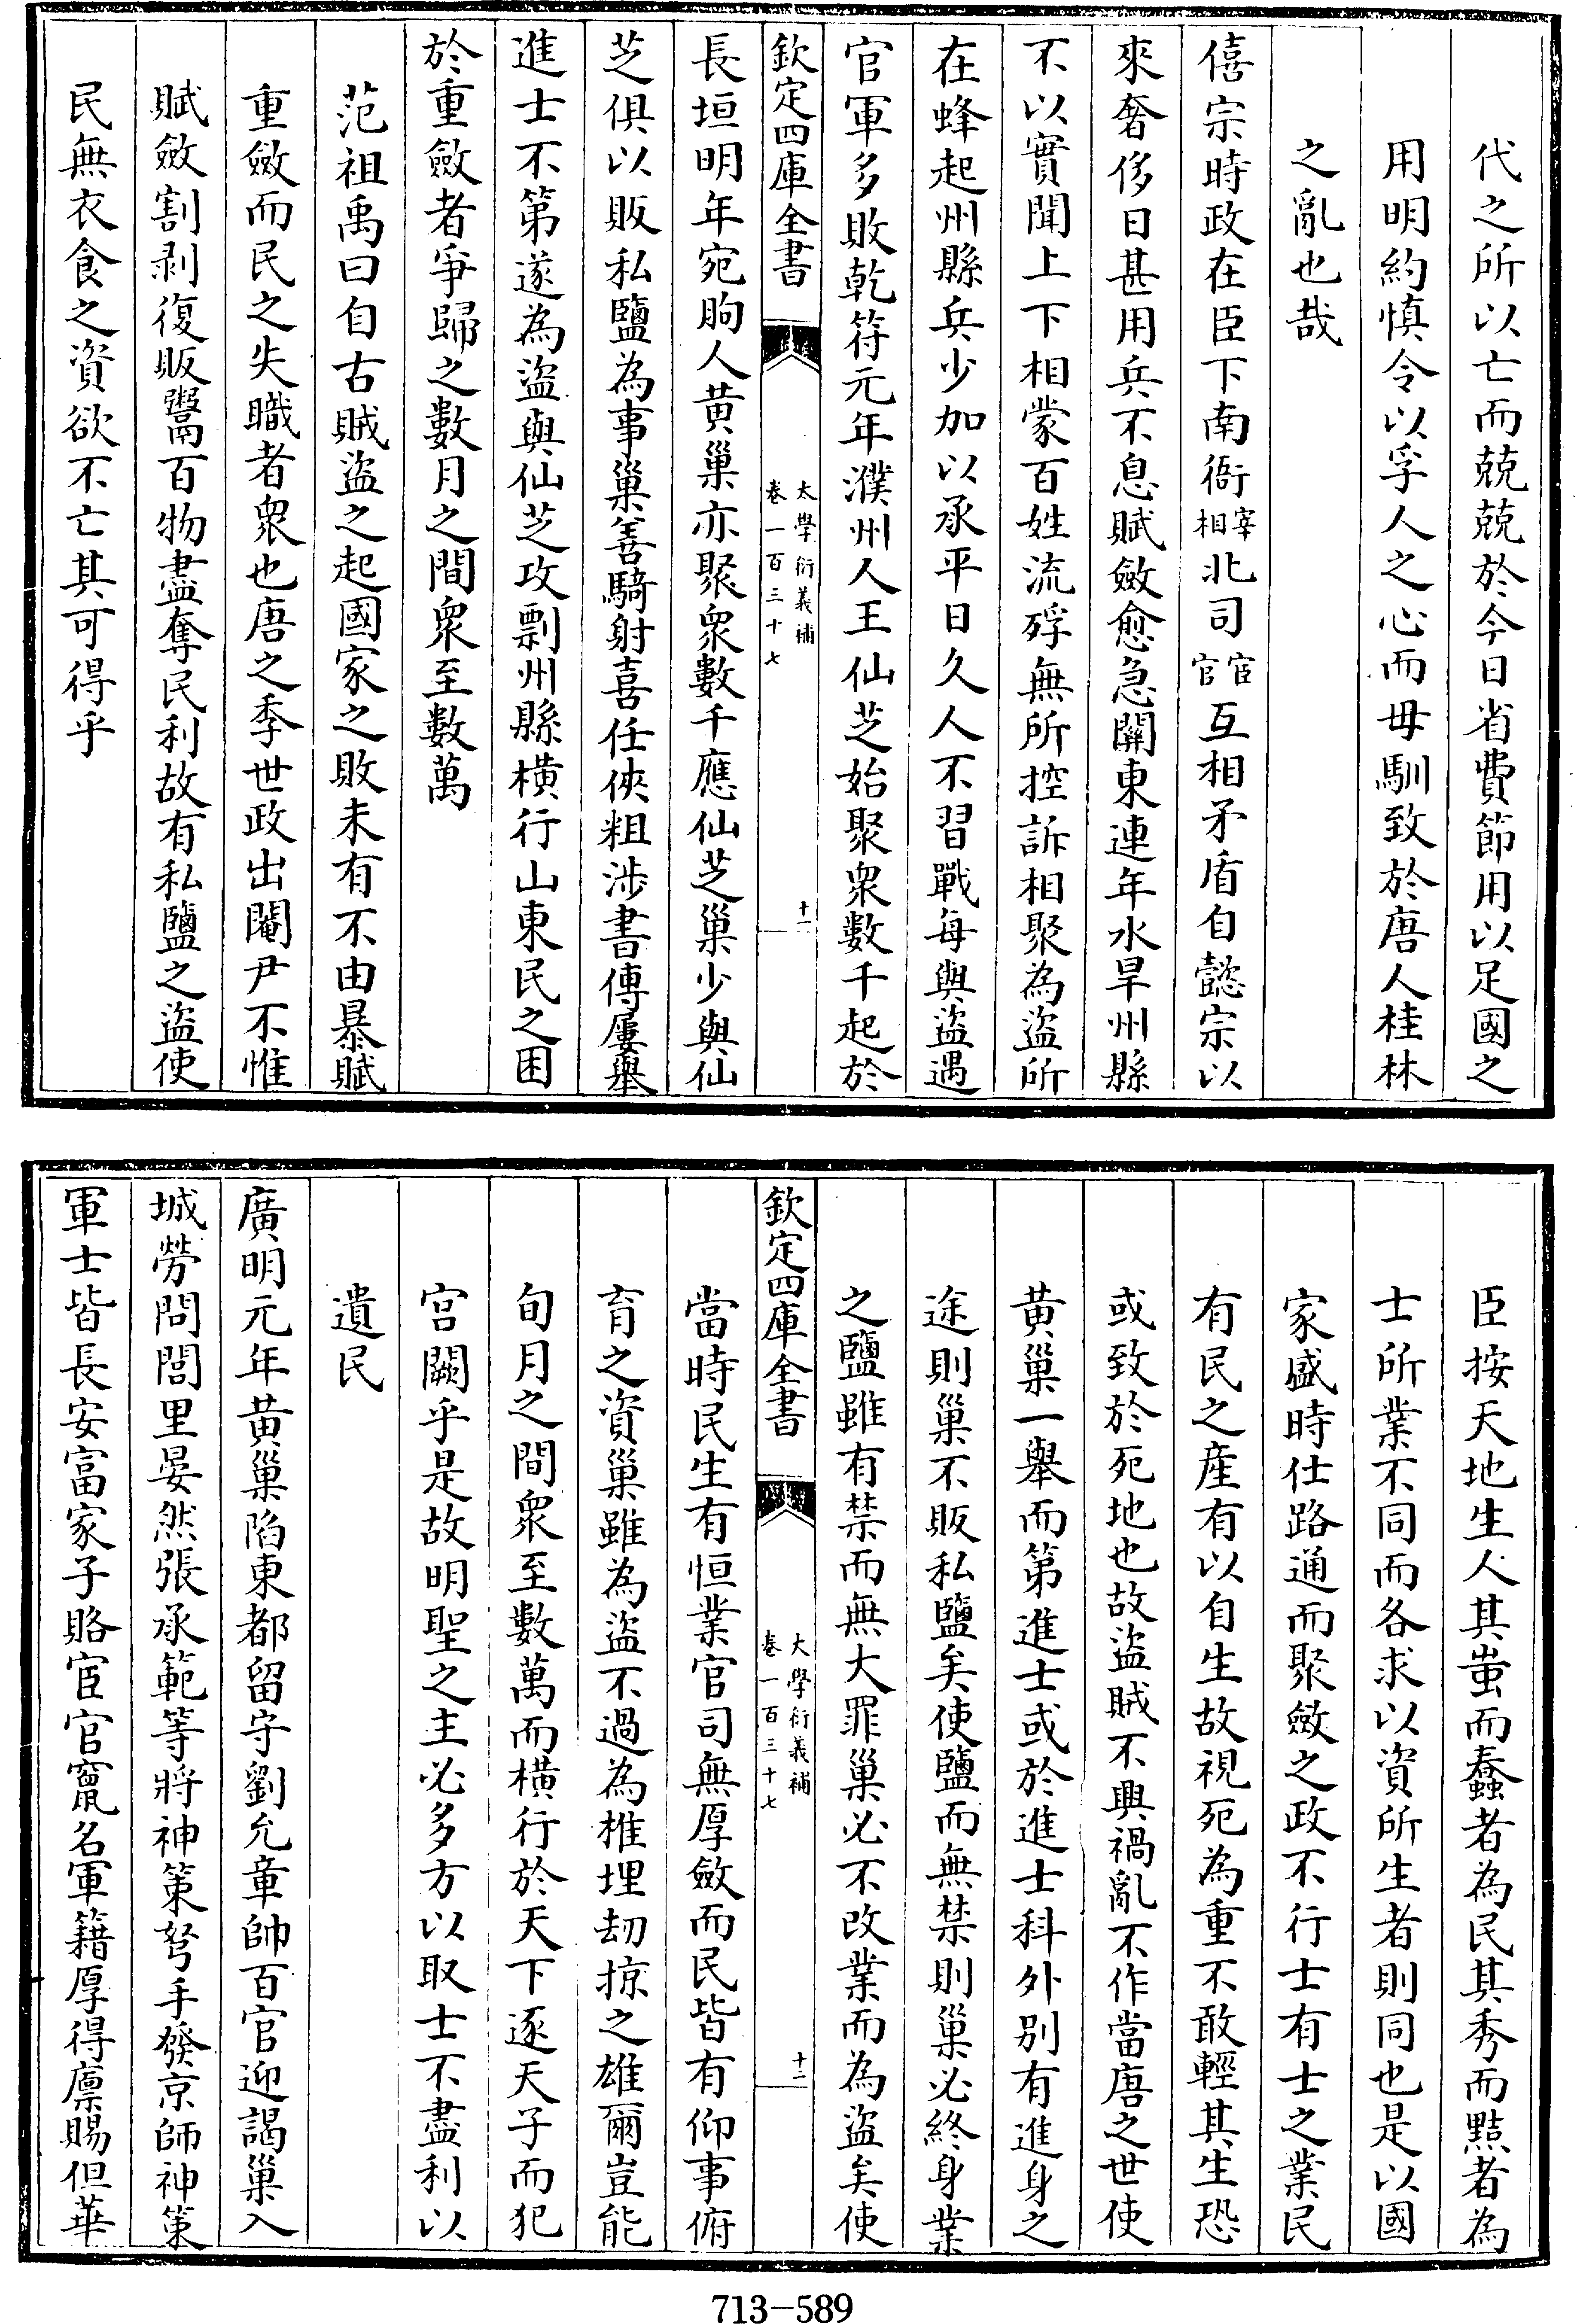 代之所以亡而兢兢於今日省費節用以足國之
用明約慎令以孚人之心而毋馴致於唐人桂林
之亂也哉
僖宗時政在臣下南衙宰相北司宦官互相矛盾自懿宗以
來奢侈日甚用兵不息賦斂愈急關東連年水旱州縣
不以實聞上下相蒙百姓流殍無所控訴相聚為盜所
在蜂起州縣兵少加以承平日久人不習戰每與盜遇
官軍多敗乾符元年濮州人王仙芝始聚衆數千起於
欽定四庫全書
大學衍義補
卷一百三十七
十一
長垣明年宛朐人黄巢亦聚衆數千應仙芝巢少與仙
芝俱以販私鹽為事巢善騎射喜任俠粗涉書傳屢舉
進士不第遂為盜與仙芝攻剽州縣橫行山東民之困
於重斂者爭歸之數月之間衆至數萬
范祖禹曰自古賊盜之起國家之敗未有不由暴賦
重斂而民之失職者衆也唐之季世政出閹尹不惟
賦斂割剥復販鬻百物盡奪民利故有私鹽之盜使
民無衣食之資欲不亡其可得乎
臣按天地生人其蚩而蠢者為民其秀而黠者為
士所業不同而各求以資所生者則同也是以國
家盛時仕路通而聚斂之政不行士有士之業民
有民之產有以自生故視死為重不敢輕其生恐
或致於死地也故盜賊不興禍亂不作當唐之世使
黄巢一舉而第進士或於進士科外别有進身之
途則巢不販私鹽矣使鹽而無禁則巢必終身業
之鹽雖有禁而無大罪巢必不改業而為盜矣使
欽定四庫全書
大學衍義補
卷一百三十七
十二
當時民生有恒業官司無厚斂而民皆有仰事俯
育之資巢雖為盜不過為椎埋刼掠之雄爾豈能
旬月之間衆至數萬而橫行於天下逐天子而犯
宫闕乎是故明聖之主必多方以取士不盡利以
遺民
廣明元年黄巢陷東都留守劉允章帥百官迎謁巢入
城勞問閭里晏然張承範等將神策弩手發京師神策
軍士皆長安富家子賂宦官竄名軍籍厚得廪賜但華
713-589